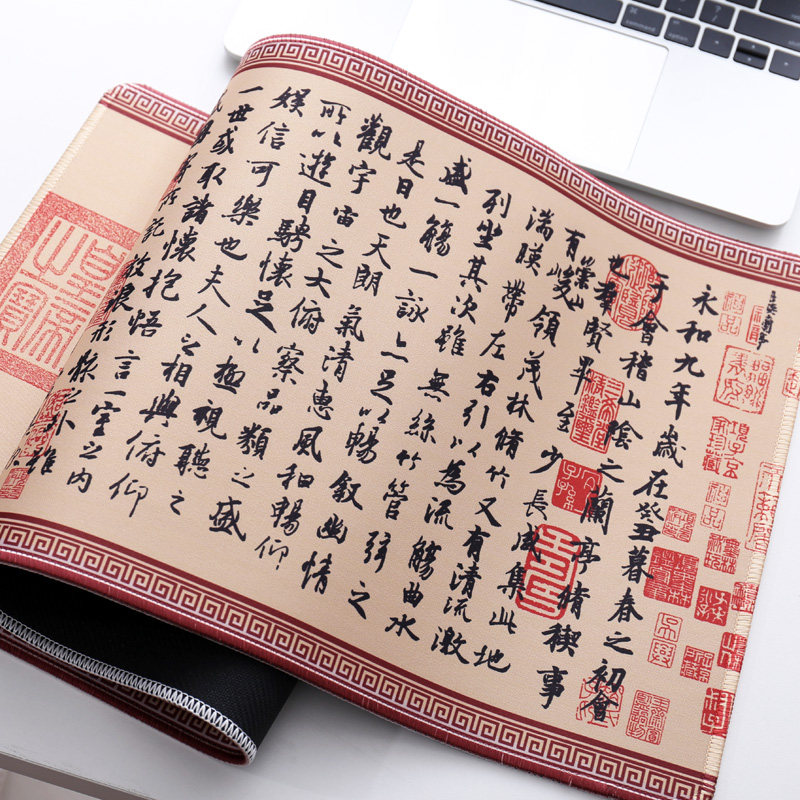 永和九年歲在癸丑暮春之初會
于會稽山陰之蘭亭脩禊事
也羣賢畢至少長咸集此地
有崇山峻領茂林脩竹又有清流激
湍暎帶左右引以為流觴曲水
列坐其次雖無絲竹管弦之
盛一觴一詠亦足以暢叙幽情
是日也天朗氣清惠風和暢仰
觀宇宙之大俯察品類之盛
所以遊目騁懷足以極視聽之
娛信可樂也夫人之相與俯仰
一世或取諸懷抱悟言一室之內
寄所託放浪形骸之外雖
皇帝之寶